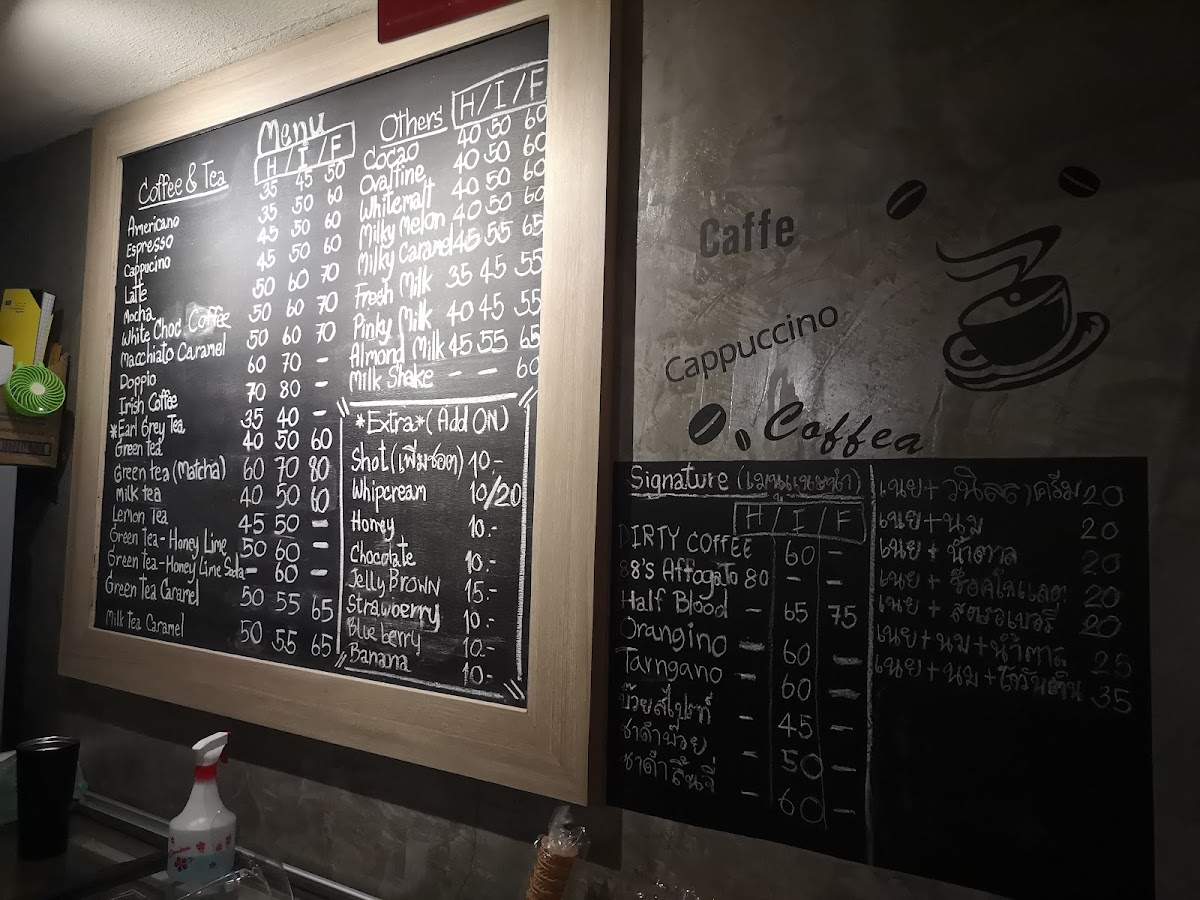 Menu
Coffee & Tea H / I / F
Americano 35 45 50
Espresso 35 50 60
Cappucino 45 50 60
Latte 45 50 60
Mocha 50 60 70
White Choc Coffee 50 60 70
Macchiato Caramel 50 60 70
Doppio 60 70 -
Irish Coffee 70 80 -
*Earl Grey Tea 35 40 -
Green Tea 40 50 60
Green tea (Matcha) 60 70 80
Milk tea 40 50 60
Lemon Tea 45 50 -
Green Tea - Honey Lime 50 60 -
Green Tea - Honey Lime Soda - 60 -
Green Tea Caramel 50 55 65
Milk Tea Caramel 50 55 65
Others H / I / F
Cocao 40 50 60
Ovaltine 40 50 60
Whitemalt 40 50 60
Milky Melon 40 50 60
Milky Caramel 45 55 65
Fresh Milk 35 45 55
Pinky Milk 40 45 55
Almond Milk 45 55 65
Milk Shake - - 60
*Extra* (Add ON)
Shot (เพิ่มชอต) 10.-
Whipcream 10/20
Honey 10.-
Chocolate 10.-
Jelly BROWN 15.-
Strawberry 10.-
Blueberry 10.-
Banana 10.-
Caffe
Cappuccino
Coffea
Signature (เมนูแนะนำ)
H / I / F
DIRTY COFFEE 60 -
88's Affogato 80 - -
Half Blood - 65 75
Orangino - 60 -
Tarngano - 60 -
บ๊วยสไปรท์ - 45 -
ชาดำบ๊วย - 50 -
ชาดำลิ้นจี่ - 60 -
เนย + วนิลาครีม 20
เนย + นม 20
เนย + น้ำตาล 20
เนย + ช็อคโกแลต 20
เนย + สตรอเบอรี่ 20
เนย + นม + น้ำตาล 25
เนย + นม + โอวัลติน 35